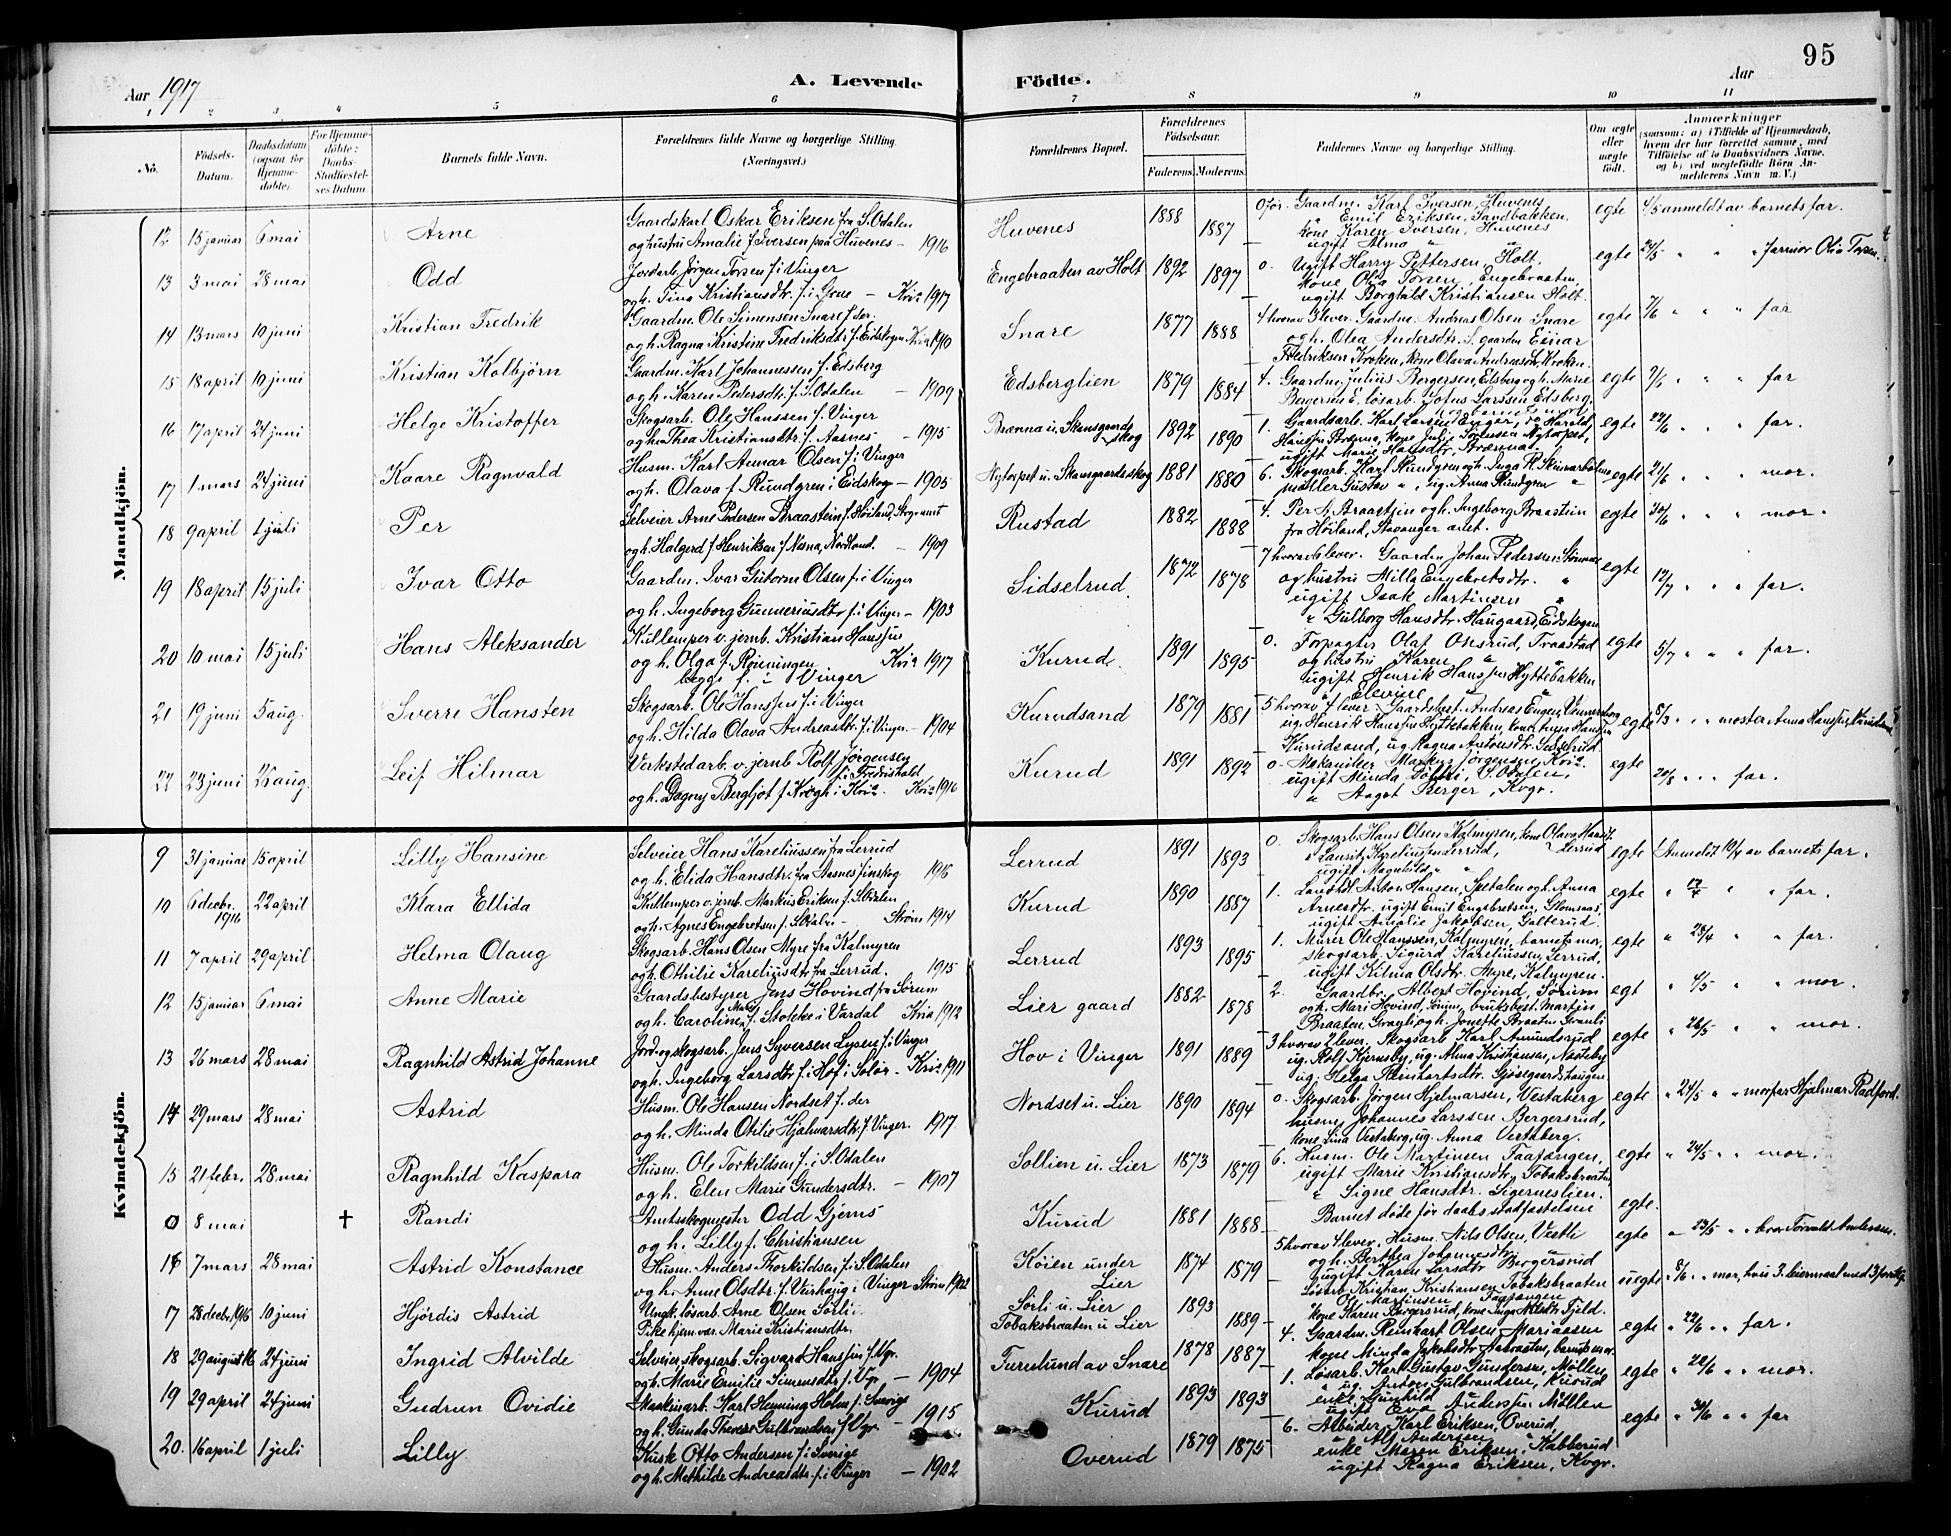 95
Aar 1917
A. Levende Födte.
Aar
1 2 3 4 5 6 7 8 9 10 11
No.
Födsels-Datum.
Daabsdatum (ogsaa for Hjemme-döbte).
For Hjemme-döbte: Daabs-Stadfæstel-ses Datum
Barnets fulde Navn.
Forældrenes fulde Navne og borgerlige Stilling. (Næringsvei.)
Forældrenes Bopæl.
Forældrenes Födselsaar.
Faderens. Moderens.
Faddernes Navne og borgerlige Stilling.
Om ægte eller uægte født.
Anmærkninger
(saasom: a) i Tilfælde af Hjemmedaab, hvem der har forrettet samme, med Tilföielse af to Daabsvidners Navne, og b) ved uægtefödte Börn An-melderens Navn m. V.)
Mandkjön.
12 15 januar 6 mai Arne
Gaardskarl Oskar Eriksen fra S. Odalen
og hustru Amalie f. Iversen paa Huvenes - 1916
Huvenes 1888 1887
0 før. Gaardm. Karl Iversen, Huvenes
" Emil Eriksen, Sandbakken.
kone Karen Iversen, Huvenes
ugift Alma " "
egte 4/5 anmeldt av barnets far.
13 3 mai 28 mai Odd
Jordarb. Jörgen Torsen f. i Vinger
og h. Tina Kristiansdtr. f. i Grue - Kr.a 1917
Engebraaten av Holt 1892 1897
0. Ugift Harry Pettersen, Holt.
kone Olia Torsen, Engebraaten,
ugift Borghild Kristiansen Holt.
egte 24/5 " " farmor Olia Torsen.
14 13 mars 10 juni Kristian Fredrik
Gaardm. Ole Simensen Snare f. der.
og h. Ragna Kristine Fredriksdtr. f. Eidskogen Kr.a 1910
Snare 1877 1888
4 hvorav 3 lever. Gaardm. Andreas Olsen Snare
og h. Olea Andersdtr. S. gaardm Einar
Fredriksen Kroken, kone Olava Andreasdtr. Kroken.
egte 7/6 " " " far
15 18 april 10 juni Kristian Kolbjörn
Gaardm. Karl Johannessen f. Edsberg
og h. Karen Pedersdtr. f. S. Odalen - 1909
Edsberglien 1879 1884
4. Gaardm. Julius Bergersen, Edsberg og h. Marie
Bergersen E. løsarb. Jofus Larssen Edsberg.
egte 7/6 " " " far
16 17 april 24 juni Helge Kristoffer
Skogsarb. Ole Hanssen f. Vinger
og h. Thea Kristiansdtr. f. Aasnes - 1915
Brænna u. Skansgaards skog 1892 1890
1. Gaardsarb. Karl Larsen Enger, do Harald
Hanssen Brænna, kone Julie Sörensen Nytorpet,
ugift Marie Hansdtr. Brænna.
egte 22/6 " " " far.
17 1 mars 24 juni Kaare Ragnvald
Husm. Karl Anmar Olsen f. i Vinger
og h. Olava f. Rundgren i Eidskog - 1905
Nytorpet u. Skansgaards skog 1881 1880
6. Skogsarb. Karl Rundgren og h. Inga R. Skinnarbølmo
møller Gustav " , ug. Anna Rundgren "
egte 21/6 " " " mor.
18 9 april 1 juli Per
Selveier Arne Pedersen Braastein f. Høiland, Stav. amt
og h. Halgerd f. Henriksen f. Nesna, Nordland. - 1909
Rustad 1882 1888
4. Per A. Braastein og h. Ingeborg Braastein
fra Höiland, Stavanger amt.
egte 30/6 " " " mor.
19 18 april 15 juli Ivar Otto
Gaardm. Ivar Gutorm Olsen f. i Vinger
og h. Ingeborg Gunneriusdtr. f. i Vinger - 1903
Sidselrud. 1872 1878
7 hvorav 6 lever. Gaardm. Johan Pedersen Stømne
og hustru Milla Engebretsdtr. "
ugift Isak Martinsen "
" Gulborg Hansdtr. Haugaard, Eidskogen
egte 12/7 " " " far.
20 10 mai 15 juli Hans Aleksander
Killemper v. jernb. Kristian Hanssen
og h. Olga f. Røiningen Kr.a 1917
begge f. i Vinger
Kurud. 1891 1895
0. Forpagter Olaf Olsrud, Traastad
og hustru Karen "
ugift Henrik Hanssen Hyttebakken
" Elevine "
egte 5/7 " " " far.
21 19 juni 5 aug. Sverre Hansten
Skogsarb. Ole Hanssen f. i Vinger
og h. Hilda Olava Andreasdtr. f. i Vinger. - 1904
Kurudsand 1879 1881
5 hvorav 4 lever. Gaardsbest. Andreas Enger, Vennersberg
ug. Henrik Hanssen Hyttebakken, kone Anna Hanssen
Kurudsand, ug. Ragna Andreasdtr. Sidselrud
egte 5/8 " " moster Anna Hanssen, Kurudsand
22 23 juni 26 aug. Leif Hilmar
Verkstedarb. v. jernb. Rolf Jørgensen
f. i Fredrikshald
og h. Dagny Bergljot f. Krogh i Kr.a. Kr.a 1916
Kurud 1891 1892
0. Mekaniker Markus Jörgensen, Kr.a.
ugift Minda Totti, S. Odalen,
" Aagot Berger, Kvgr.
egte 20/8 " " " far.
Kvindekjön.
9 31 januar 15 april Lilly Hansine
Selveier Hans Kareliussen fra Lerrud
og h. Elida Hansdtr. fra Aasnes finskog 1916
Lerrud 1891 1893
0. Skogsarb. Hans Olsen Kalmyren, kone Olava Hansdtr.
" Lauritz Kareliussen Lerrud, Lerrud
ugift Magnhild " "
egte Anmeldt 10/4 av barnets far.
10 6 decbr. 1916 22 april Klara Ellida
Killemper v. jernb. Markus Eriksen f. S. Odalen
og h. Agnes Engebretsen f. S. Odalen - Strøm 1914
Kurud 1890 1887
1. Landhdl. Anton Hansen, Spetalen og h. Anna
Arnesdtr. ugift Emil Engebretsen, Slomsaas,
ugift Amalie Jakobsen, Galterud.
egte " 17/4 " " far.
11 7 april 29 april Helma Olaug
Skogsarb. Hans Olsen Myre fra Kalmyren
og h. Othilie Kareliusdtr. fra Lerrud. 1915
Lerrud 1893 1895
1. Murer Ole Hanssen, Kalmyren, barnets mor,
skogsarb. Sigurd Kareliussen Lerrud,
ugift Kilma Olsdtr. Myre, Kalmyren.
egte " 28/4 " " far.
12 15 januar 6 mai Anne Marie
Gaardsbestyrer Jens Hovind fra Sörum
og h. Caroline Marie f. Stokke i Vardal Kr.a 1912
Lier gaard 1882 1878
2. Gaardbr. Albert Hovind, Sörum
og h. Mari Hovind, Sörum, bruksbest. Martin
Braaten, Granli og h. Jonette Braaten Granli
egt " 4/5 " " mor.
13 26 mars 28 mai Ragnhild Astrid Johanne
Jord. og skogsarb. Jens Syversen Lysen f. i Vinger
og h. Ingeborg Larsdtr. f. i Hof i Solør - Kr.a 1911
Hov i Vinger 1891 1889
3 hvorav 2 lever. Skogsarb Karl Amundsrud
ug. Rolf Kjernsby, ug. Alma Kristiansen, Næsteby
ug. Helga Reinhartsdtr. Gjøsegaardshaugen
egte " 26/5 " " mor.
14 29 mars 28 mai Astrid
Husm. Ole Hansen Nordset f. der
og h. Minda Otilie Hjalmarsdtr. f. Vinger. 1917
Nordset u. Lier 1890 1894
0. Skogsarb. Jörgen Hjelmarsen, Vestaberg
husm. Johannes Larssen Bergersrud,
kone Lina Vestaberg, ug. Anna Vestaberg.
egte " 24/5 " " morfar Hjalmar Radford.
15 21 febr. 28 mai Ragnhild Kaspara
Husm. Ole Torkildsen f. i S. Odalen
og h. Elen Marie Gundersdtr. - 1907
Sollien u. Lier 1873 1879
6. Husm. Ole Martinsen Faafangen,
ugift Marie Kristiansdtr. Tobaksbraaten
" Signe Hansdtr. Sigerneslien.
egte " 24/5 " " mor.
0 8 mai † Randi
Amtsskogmester Odd Gjems
og h. Lilly f. Christiansen
Kurud 1881 1888
Barnet döde för daabsstadfæstelsen
egte.
16 7 mars 28 mai Astrid Konstance
Husm. Anders Thorkildsen f. i S. Odalen
og h. Anne Olsdtr. f. Veirhaug i Vinger Strøm 1902
Köien under Lier 1874 1879
5 hvorav 4 lever. Husm. Nils Olsen, Vestli
og h. Berthea Johannesdtr. "
ugift Karen Larsdtr. Bergersrud
egte " 23/5 " " bror Torvald Andersen.
17 28 decbr. 1916 10 juni Hjördis Astrid
Ungk. løsarb. Arne Olsen Sörli
Pike hjemvær. Marie Kristiansdtr.
Sörli u. Lier
Tobaksbraaten u. Lier 1893 1889
Løsarb. Kristian Kristiansen Tobaksbraaten
" Ole Martinsen Faafangen
kone Karen Bergersrud, kone Inga Nilsdtr. Fjeld.
uegte " 8/6 " " mor, hvis 3. leiermaal med
18 29 august 16 24 juni Ingrid Alvilde
Selveier skogsarb. Sigvart Hanssen f. Vgr.
og h. Marie Emilie Simensdtr. f. Vgr. - 1904
Furulund av Snare 1878 1887
4. Gaardm. Reinhart Olsen Mariaasen
kone Minda Jakobsdtr. Aabraaten, barnets mor.
egte " 22/6 " " far.
19 29 april 24 juni Gudrun Ovidie
Maskinarb. Karl Henning Holm f. Sverige
og h. Gunda Therese Gulbrandsen f. Vgr. - 1915
Kurud 1893 1893
1. Løsarb. Karl Gustav Gundersen, Møllen
" ug. Anton Gulbrandsen, Kurud
enke Gunhild
ugift Eva Anderssen Møllen
egte " 22/6 " " mor.
20. 16 april 1 juli Lilly
Kusk Otto Andersen f. i Sverige
og h. Mathilde Andreasdtr. f. i Vinger - 1902
Overud 1879 1875
6. Arbeider Karl Eriksen, Overud
" Alf Andersen
enke Maren Eriksen, Kabberud
ugift Ragna Eriksen, Kvgr.
egte " 30/6 " " far